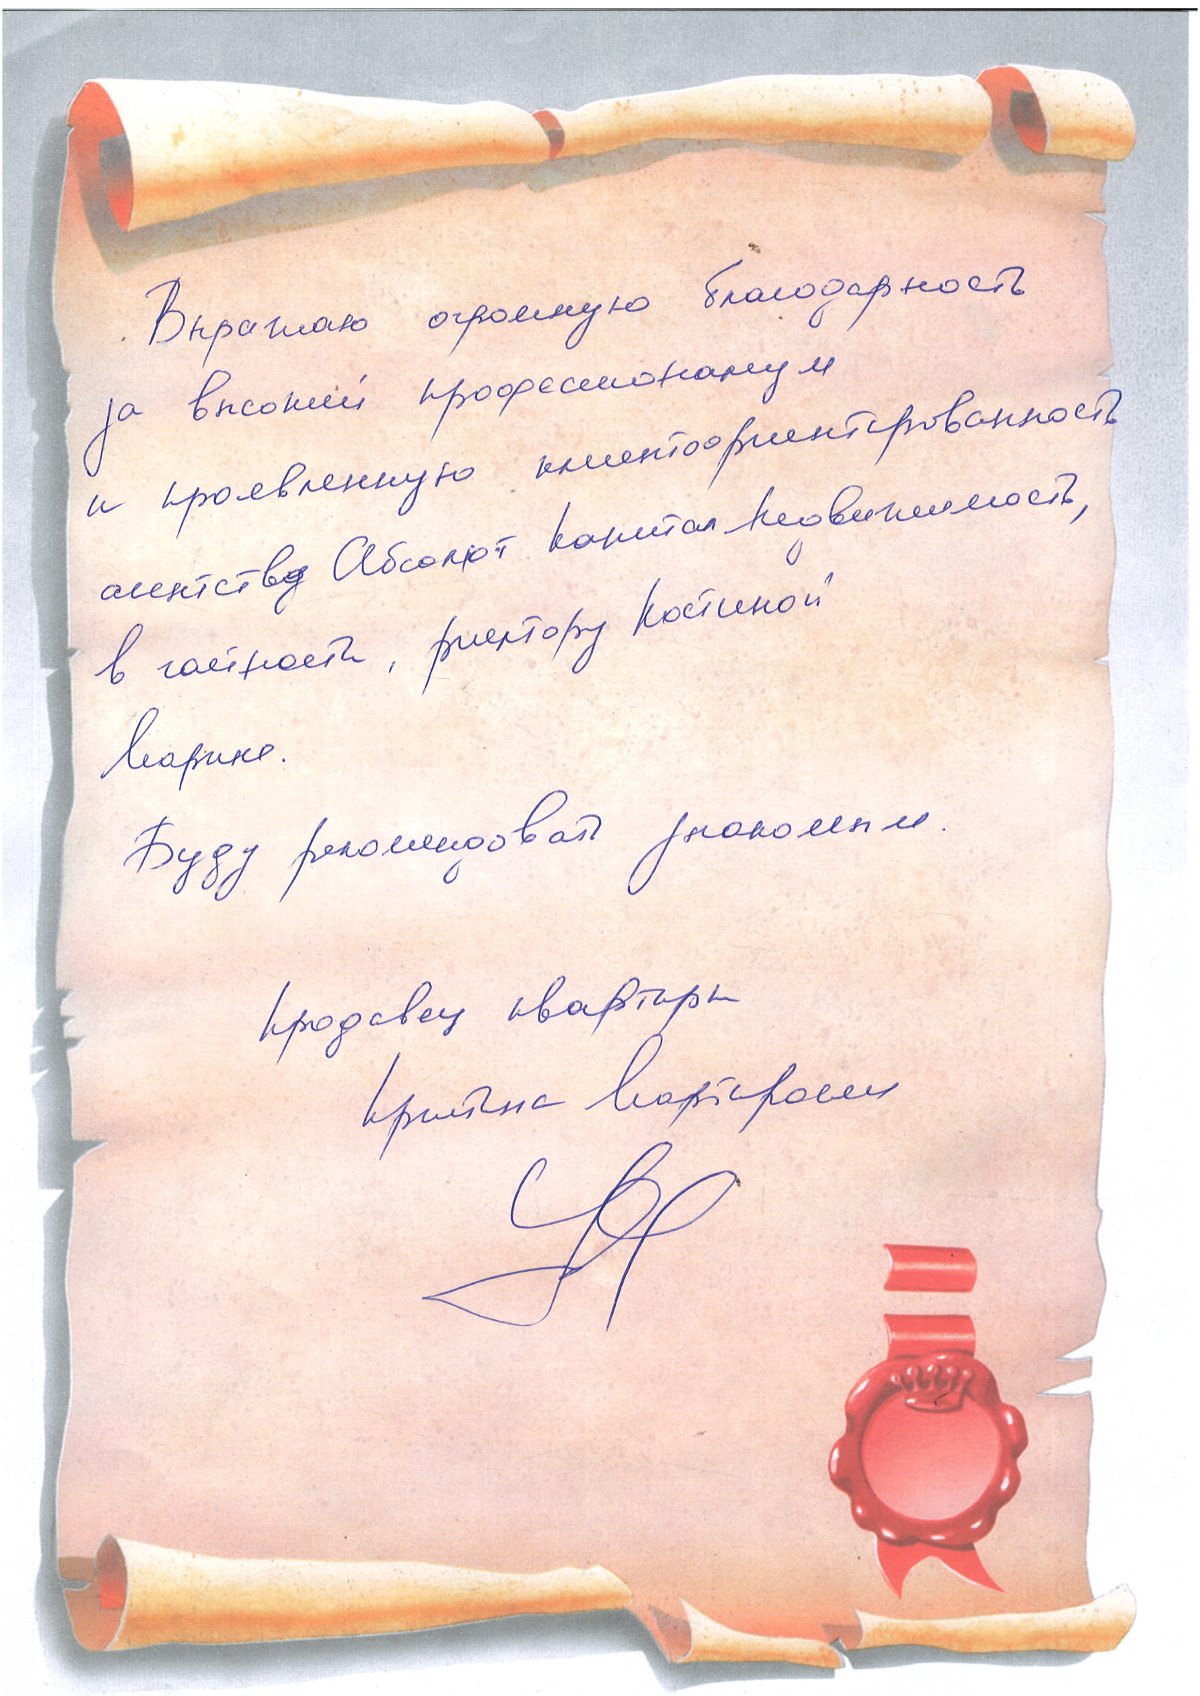 Выражаю огромную благодарность
за высокий профессионализм
и проявленную клиентоориентированность
агентства Абсолют Капитал Недвижимость,
в частности, риелтору Костиной
Марине.
Буду рекомендовать знакомым.
Продавец квартиры
Кристина Мартиросян